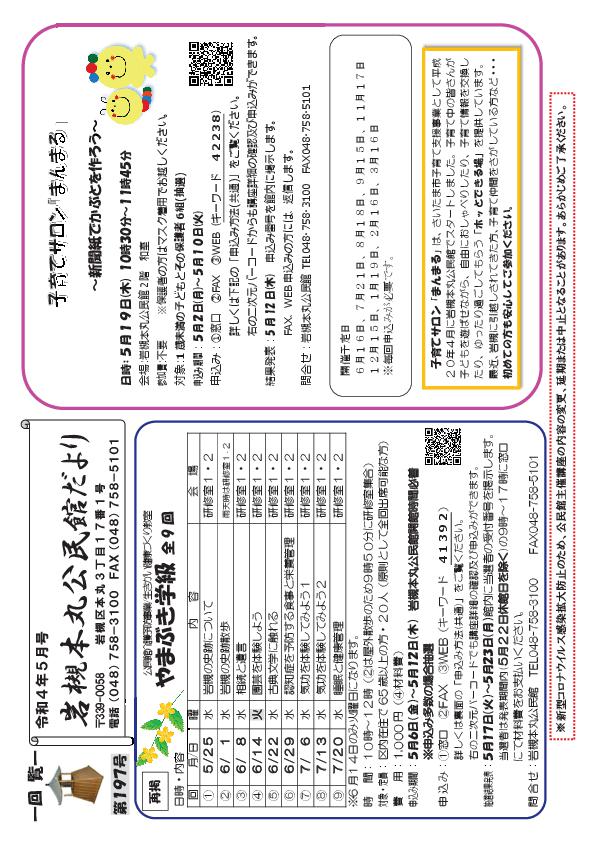 一回　覧一
第197号
令和4年5月号
岩槻本丸公民館だより
〒339-0058　岩槻区本丸3丁目17番1号
電話（048）758−3100　FAX（048）758−5101
再掲
公民館・健幸の事業（生きがい・健康づくり）教室
やまぶき学級 全9回
日時・内容
回　月/日　曜　内　容　会　場
① 5/25 水 岩槻の史跡について 研修室1・2
② 6/ 水 岩槻の史跡散歩 雨天時は研修室1・2
③ 6/ 8 水 相続と遺言 研修室1・2
④ 6/14 火 園芸を体験しよう 研修室1・2
⑤ 6/22 水 古典文学に触れる 研修室1・2
⑥ 6/29 水 認知症を予防する食事と栄養管理 研修室1・2
⑦ 7/ 6 水 気功を体験してみよう1 研修室1・2
⑧ 7/13 水 気功を体験してみよう2 研修室1・2
⑨ 7/20 水 睡眠と健康管理 研修室1・2
※6月14日のみ火曜日になります。
時　間：10時～12時（②は屋外散歩のため9時50分に研修室集合）
対象・定員　区内在住で65歳以上の方・20人（原則として全回出席可能な方）
費　用：1,000円（④材料費）
申込み期間：5月6日(金)～5月12日(木)　岩槻本丸公民館開館時間必着
※申込み多数の場合抽選
申込み：①窓口　②FAX　③WEB（キーワード　41392）
詳しくは裏面の「申込み方法（共通）」をご覧ください。
右の二次元バーコードでも講座詳細の確認及び申込みができます。
抽選結果発表：5月17日(火)～5月23日(月)館内に当選者の受付番号を掲示します。
当選者は発表期間内（5月22日休館日を除く）の9時～17時に窓口
にて材料費をお支払いください。
問合せ：岩槻本丸公民館　TEL048-758-3100　FAX048-758-5101
子育てサロン『まんまる』
～新聞紙でかぶとを作ろう～
日時：5月19日(木) 10時30分～11時45分
会場：岩槻本丸公民館2階　和室
参加費：不要　※保護者の方はマスク着用でお越しください。
対象：1歳未満の子どもとその保護者6組(抽選)
申込み期間：5月2日(月)～5月10日(火)
申込み：①窓口　②FAX　③WEB（キーワード　42238）
詳しくは下記の「申込み方法（共通）」をご覧ください。
右の二次元バーコードからも講座詳細の確認及び申込みができます。
結果発表：5月12日(木)　申込み番号を館内に掲示します。
FAX、WEB申込みの方には、返信します。
問合せ：岩槻本丸公民館　TEL048-758-3100　FAX048-758-5101
開催予定日
6月16日、7月21日、8月18日、9月15日、11月17日
12月15日、1月19日、2月16日、3月16日
※毎回申込みが必要です。
子育てサロン「まんまる」は、さいたま市子育て支援事業として平成
20年4月に岩槻本丸公民館でスタートしました。子育て中の皆さんが
子どもを遊ばせながら、自由におしゃべりしたり、子育て情報を交換し
たり、ゆったり過ごしてもらう「ホッとできる場」を提供しています。
最近、岩槻に引越しされてきた方、子育て仲間をさがしている方など・・・
初めての方も安心してご参加ください。
※新型コロナウイルス感染拡大防止のため、公民館主催講座の内容の変更、延期または中止となることがあります。あらかじめご了承ください。